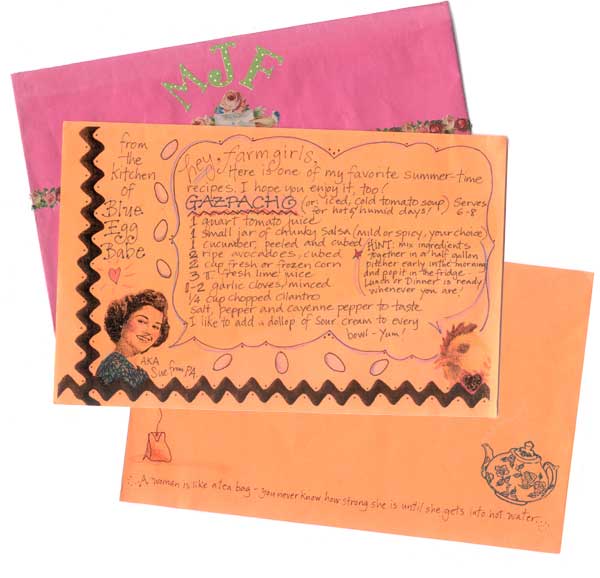 MJF
from
the
kitchen
of
Blue
Egg
Babe
hey, farmgirls,
Here is one of my favorite summer-time
recipes. I hope you enjoy it, too!
GAZPACHO (or: iced, cold tomato soup) Serves
for hot & humid days! 6-8
1 quart tomato juice
1 small jar of chunky salsa (mild or spicy, your choice)
1 cucumber, peeled and cubed
2 ripe avocadoes, cubed
cup fresh or frozen corn
3 T fresh lime juice
1-2 garlic cloves, minced
¼ cup chopped cilantro
salt, pepper and cayenne pepper to taste
I like to add a dollop of sour cream to every
bowl - Yum!
HINT: mix ingredients
together in a half gallon
pitcher early in the morning
and pop it in the fridge.
Lunch or Dinner is ready
whenever you are!
AKA
Sue from PA
...A woman is like a tea bag - you never know how strong she is until she gets into hot water...